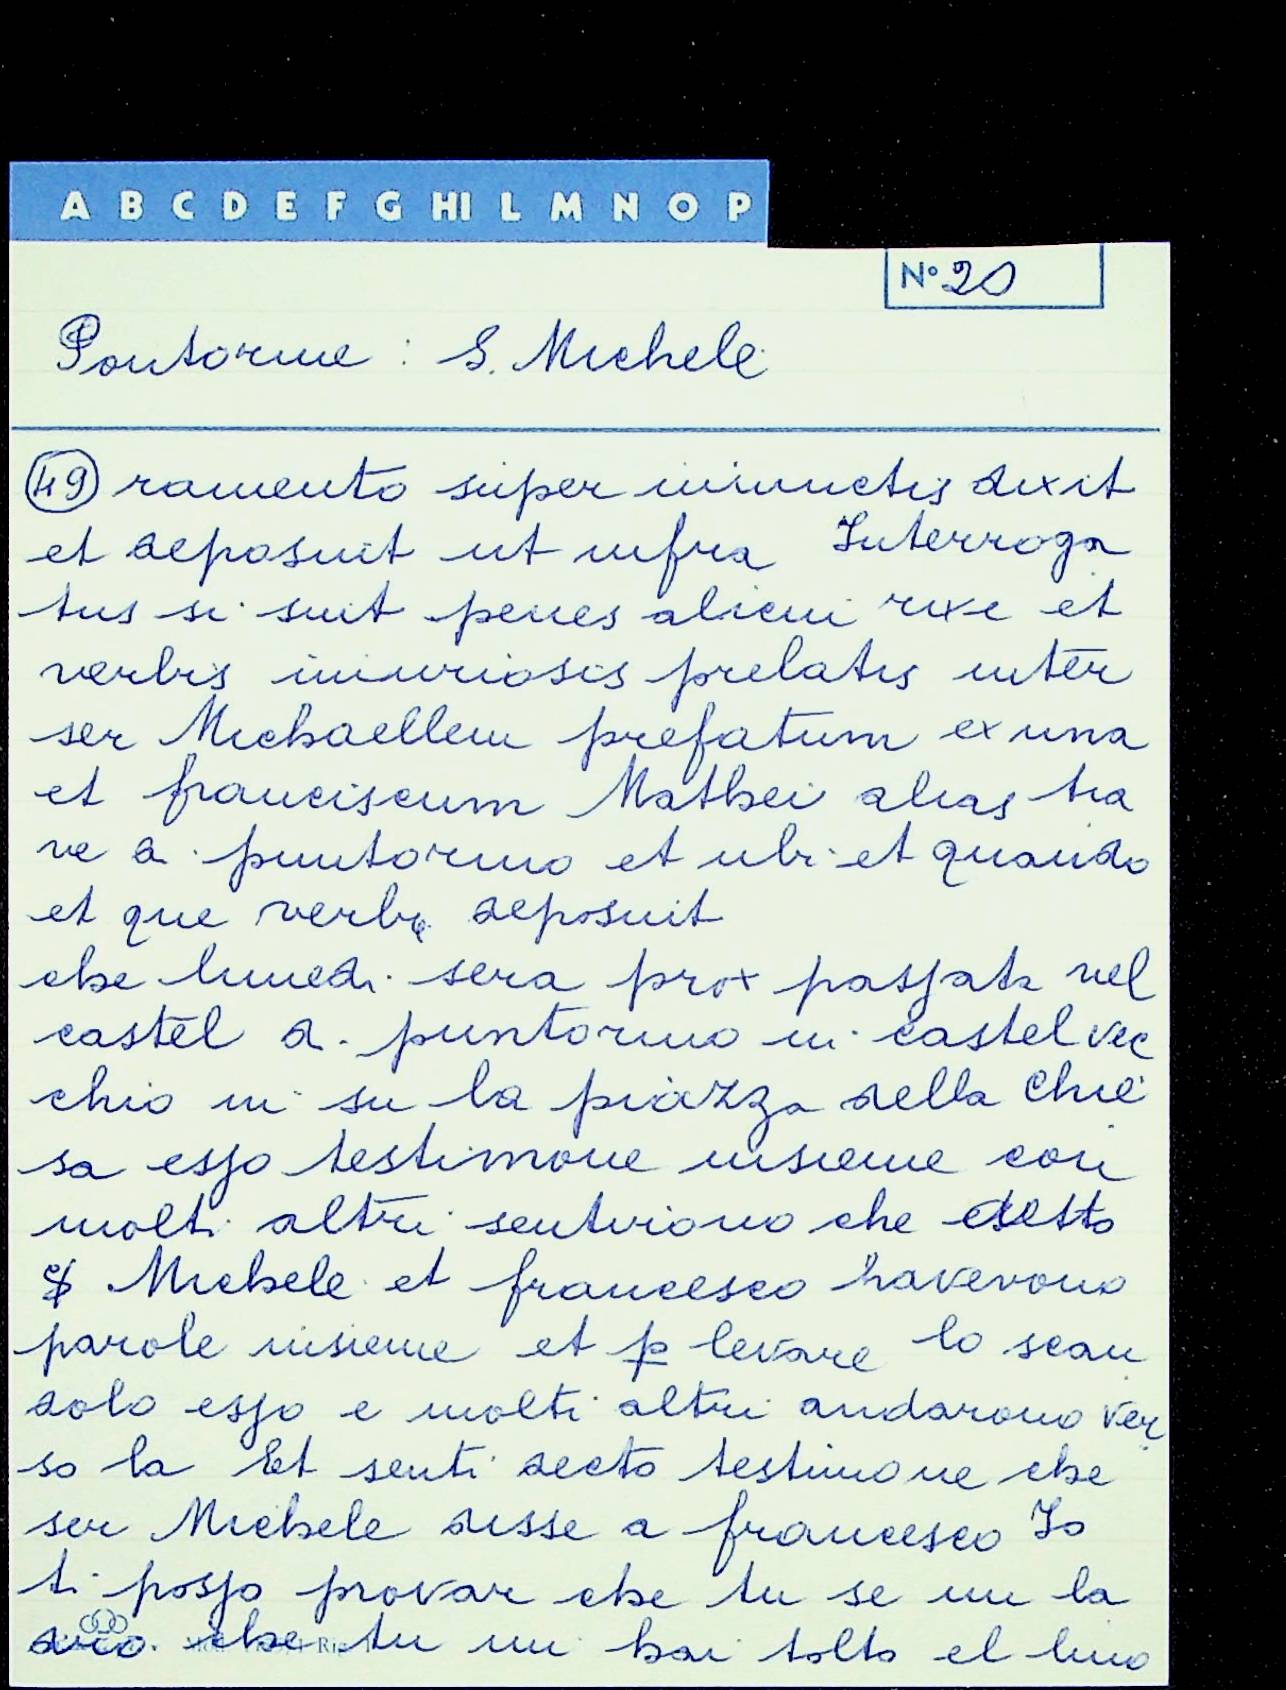 A B C D E F G HI L M N O P
N° 20
Pontorme : S. Michele
49 ramento super iniunctis dixit
et deposuit ut infra Interroga
tus si suit penes alicui rixe et
verbis iniuriosis prelatis inter
ser Michaellem prefatum ex una
et franciscum Mathei alias tra
ve d. puntormo et ubi et quando
et que verba deposuit
che lunedi sera prox passata nel
castel d. puntormo in castel vec
chio in su la piazza della Chie
sa esso testimone insieme con
molti altri sentirono che detto
S Michele et francesco havevono
parole insieme et p levare lo scan
dolo esso e molti altri andarono ver
so la Et senti decto testimone che
ser Michele disse a francesco Io
ti posso provar che tu se un la
dro che tu mi hai tolto el lino